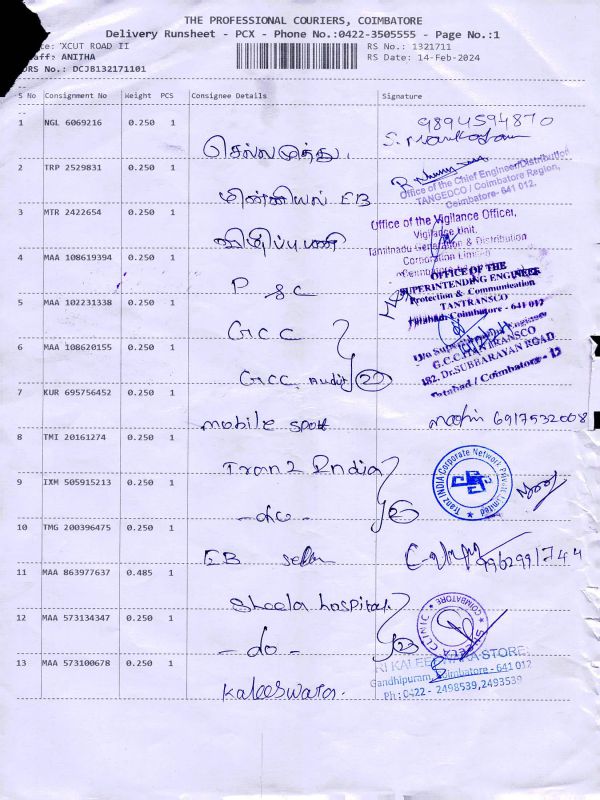 THE PROFESSIONAL COURIERS, COIMBATORE
Delivery Runsheet - PCX - Phone No.:0422-3505555 - Page No.:1
XCUT ROAD II
RS No.: 1321711
ANITHA
RS Date: 14-Feb-2024
DRS No.: DCJB132171101
S No Consignment No Weight PCS Consignee Details Signature
1 NGL 6069216 0.250 1 செல்லமுத்து. 9894594870
2 TRP 2529831 0.250 1 மின்னியல் EB
Office of the Chief Engineer/Distribution
TANGEDCO / Coimbatore Region,
Coimbatore- 641 012.
3 MTR 2422654 0.250 1
Office of the Vigilance Officer,
Vigilance Unit,
Tamilnadu Generation & Distribution
Corporation Limited
4 MAA 108619394 0.250 1 P&C
OFFICE OF THE
SUPERINTENDING ENGINEER
Protection & Communication
TANTRANSCO
Tatabad, Coimbatore - 641 012
5 MAA 102231338 0.250 1 GCC
6 MAA 108620155 0.250 1 GCC Audit
G.C.C. TANTRANSCO
182, Dr.SUBBARAYAN ROAD
Tatabad / Coimbatore - 12
7 KUR 695756452 0.250 1 mobile spot 6917532008
8 TMI 20161274 0.250 1 Tranz India
Tranz INDIA Corporate Network Private Limited
9 IXM 505915213 0.250 1 -do-
10 TMG 200396475 0.250 1 EB
11 MAA 863977637 0.485 1 Sheela hospital
12 MAA 573134347 0.250 1 -do-
SHEELA CLINIC * COIMBATORE *
13 MAA 573100678 0.250 1 Kaleeswara.
STORE
Gandhipuram, Coimbatore - 641 012
Ph : 0422 - 2498539, 2493539